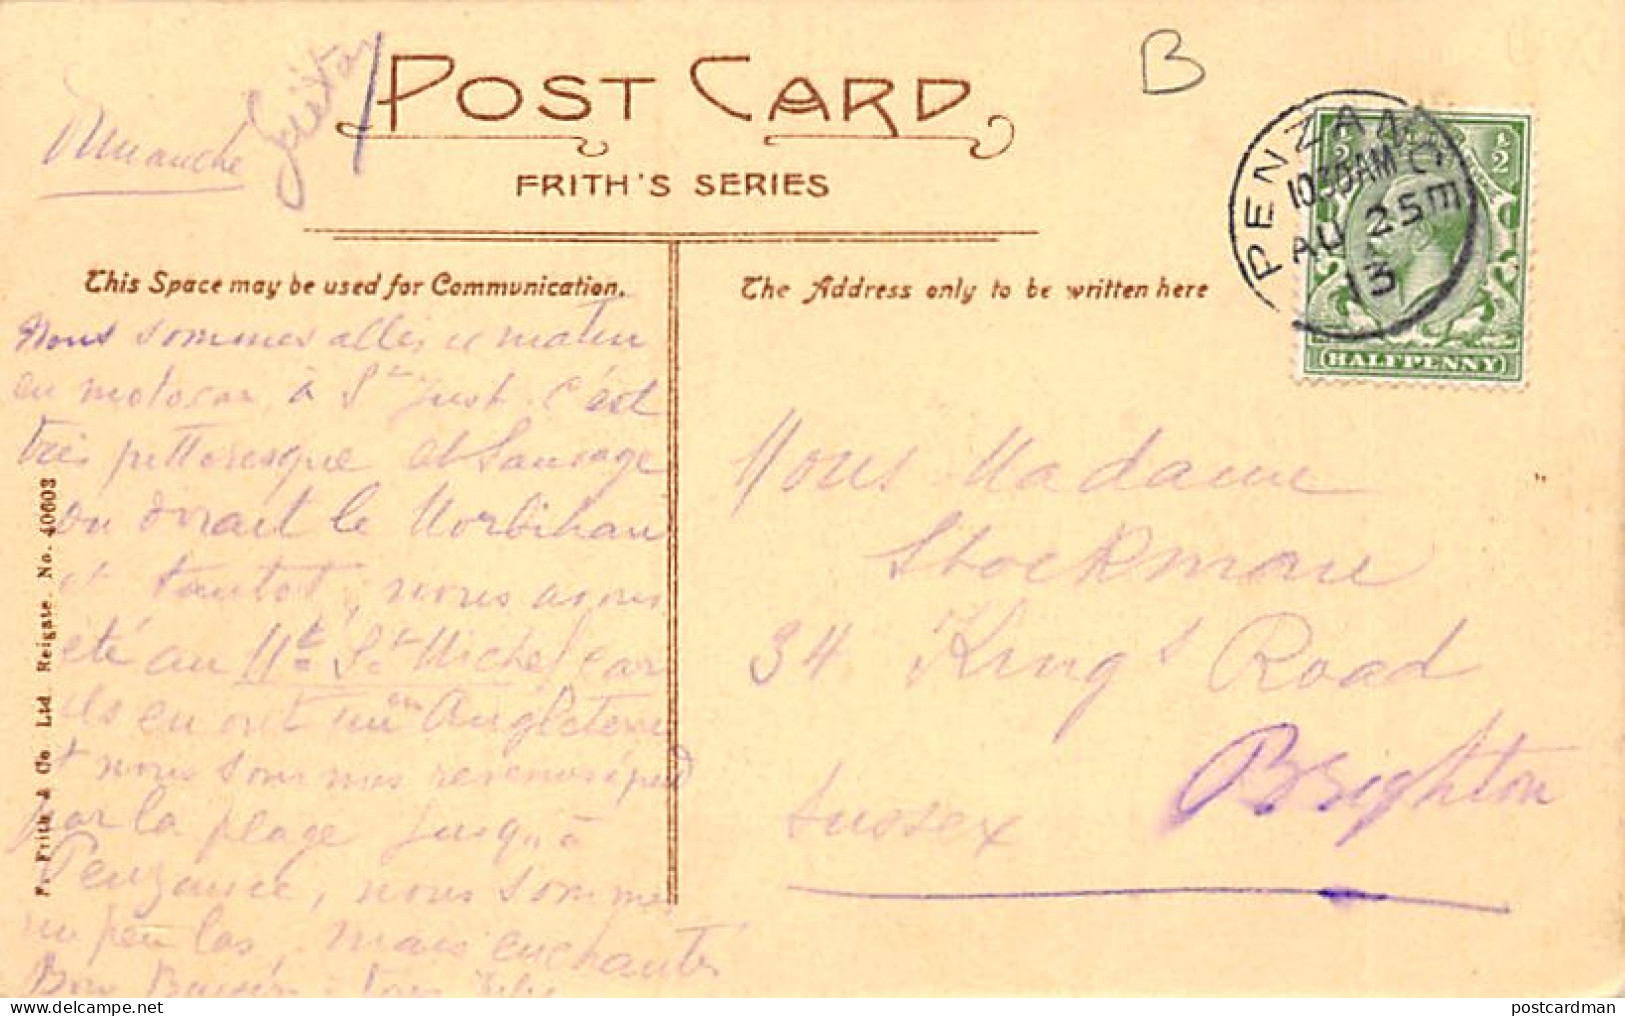 Dimanche
POST CARD
FRITH'S SERIES
B
PENZANCE
10.30AM
AU 25
13
½ ½
HALFPENNY
This Space may be used for Communication.
The Address only to be written here
Nous sommes allés ce matin
en motocar à St Just. C'est
très pittoresque et sauvage
on dirait le Morbihan
et tantôt, nous avons
été au Mt St Michel car
ils en ont un en Angleterre
et nous sommes revenus à pied
par la plage jusqu'à
Penzance, nous sommes
un peu las, mais enchantés
Bons Baisers à tous
Mons Madame
Stockmann
34 King's Road
Brighton
Sussex
F. Frith & Co Ltd. Reigate. No. 40603
postcardman